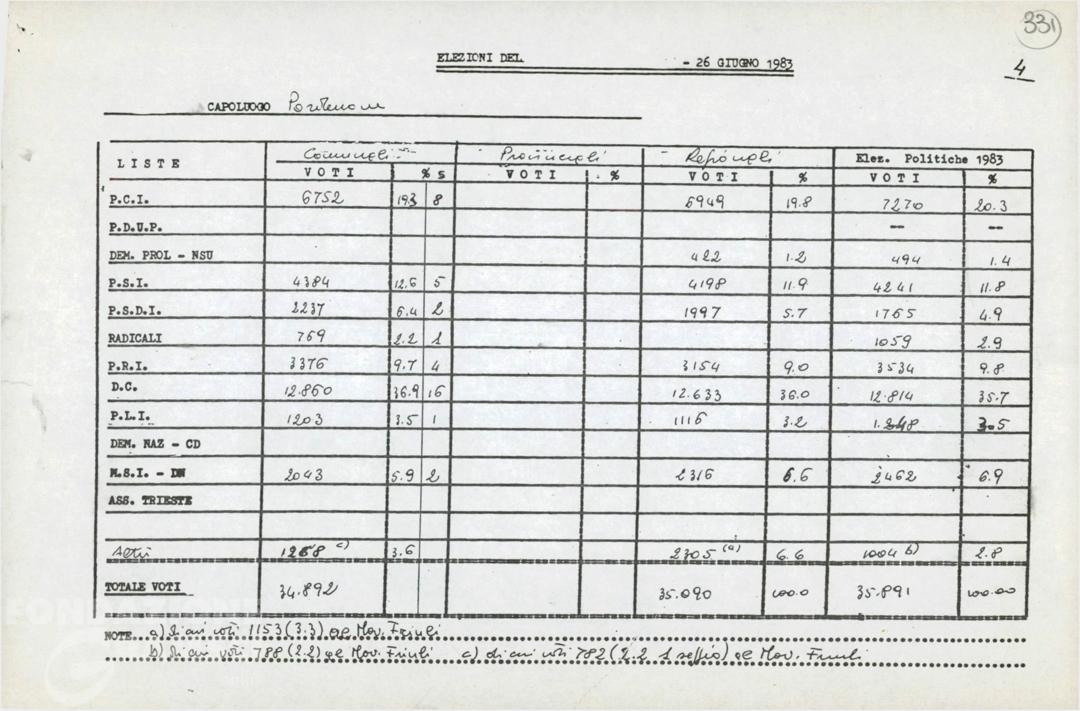 331
ELEZIONI DEL - 26 GIUGNO 1983
4
CAPOLUOGO Pordenone
LISTE Comunali Provinciali Regionali Elez. Politiche 1983
VOTI % S VOTI % VOTI % VOTI %
P.C.I. 6752 19.3 8 6949 19.8 7270 20.3
P.D.U.P. -- --
DEM. PROL - NSU 422 1.2 494 1.4
P.S.I. 4384 12.6 5 4198 11.9 4241 11.8
P.S.D.I. 2237 6.4 2 1997 5.7 1765 4.9
RADICALI 769 2.2 1 1059 2.9
P.R.I. 3376 9.7 4 3154 9.0 3534 9.8
D.C. 12.860 36.9 16 12.633 36.0 12.814 35.7
P.L.I. 1203 3.5 1 1116 3.2 1.248 3.5
DEM. NAZ - CD
M.S.I. - DN 2043 5.9 2 2316 6.6 2462 6.9
ASS. TRIESTE
Altri 1268 c) 3.6 2305 (a) 6.6 1004 b) 2.8
TOTALE VOTI 34.892 35.090 100.0 35.891 100.00
FONDAZIONE
NOTE a) di cui voti 1153 (3.3) al Mov. Friuli
b) di cui voti 788 (2.2) al Mov. Friuli c) di cui voti 782 (2.2 1 seggio) al Mov. Friuli